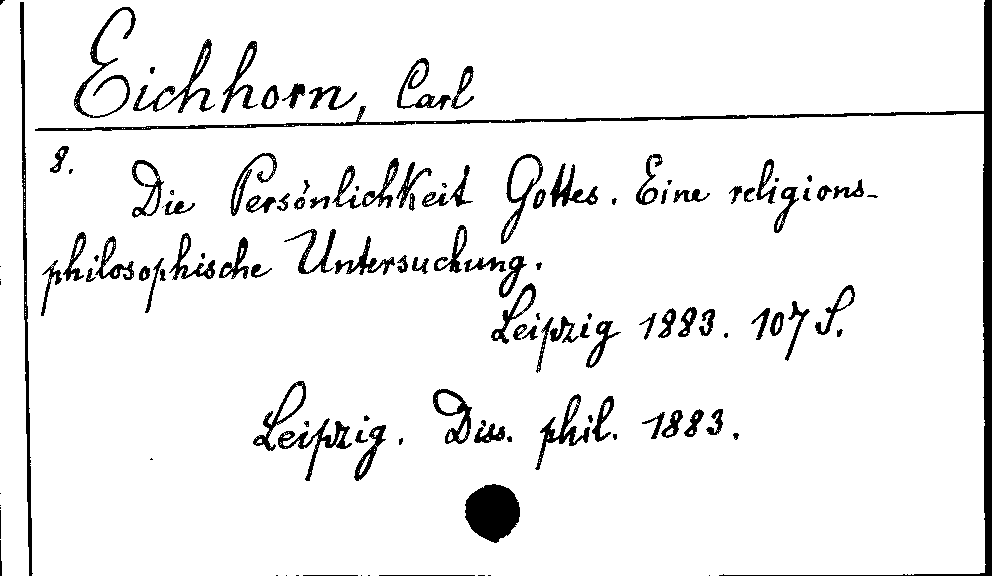 Eichhorn, Carl
8.
Die Persönlichkeit Gottes. Eine religions-
philosophische Untersuchung.
Leipzig 1883. 107 S.
Leipzig. Diss. phil. 1883.